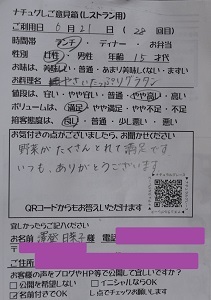 ナチュグレご意見箱(レストラン用)
ご利用日 6月21日(28回目)
時間帯 ランチ・ディナー・お弁当
性別 男性・女性 年齢 15才代
お味は、美味しい・普通・あまり美味しくない・まずい
お料理名 やさいたっぷりグラタン
値段は、安い・やや安い・普通・やや高い・高い
ボリュームは、満足・やや満足・やや不足・不足
接客態度は、良い・普通・少し悪い・悪い
お気付きの点がございましたら、お聞かせください
野菜がたくさんとれて満足です
いつも、ありがとうございます
QRコードからもお答えいただけます
宜しかったらご記入ください
お名前 様 電話
ご住所
お客様の声をブログやHP等で公開して宜しいですか?
□公開を希望しない □イニシャルならOK
□お名前サキでOK ☑点でチェックお願いします